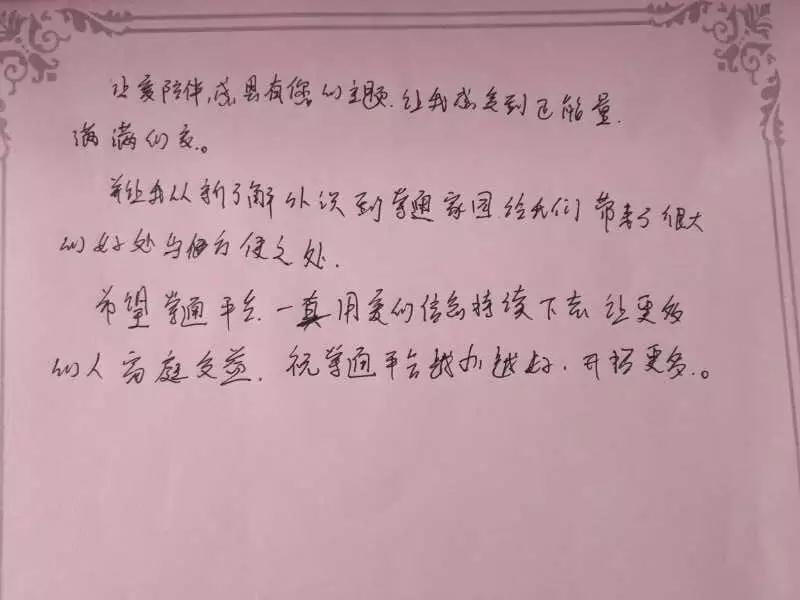 让爱陪伴,感恩有您的主题.让我感受到正能量.
满满的爱。
并让我从新了解认识到学通家园.给我们带来了很大
的好处与方便之处.
希望学通平台.一直用爱的信念持续下去 让更多
的人 家庭受益. 祝学通平台越办越好.开拓更多.。